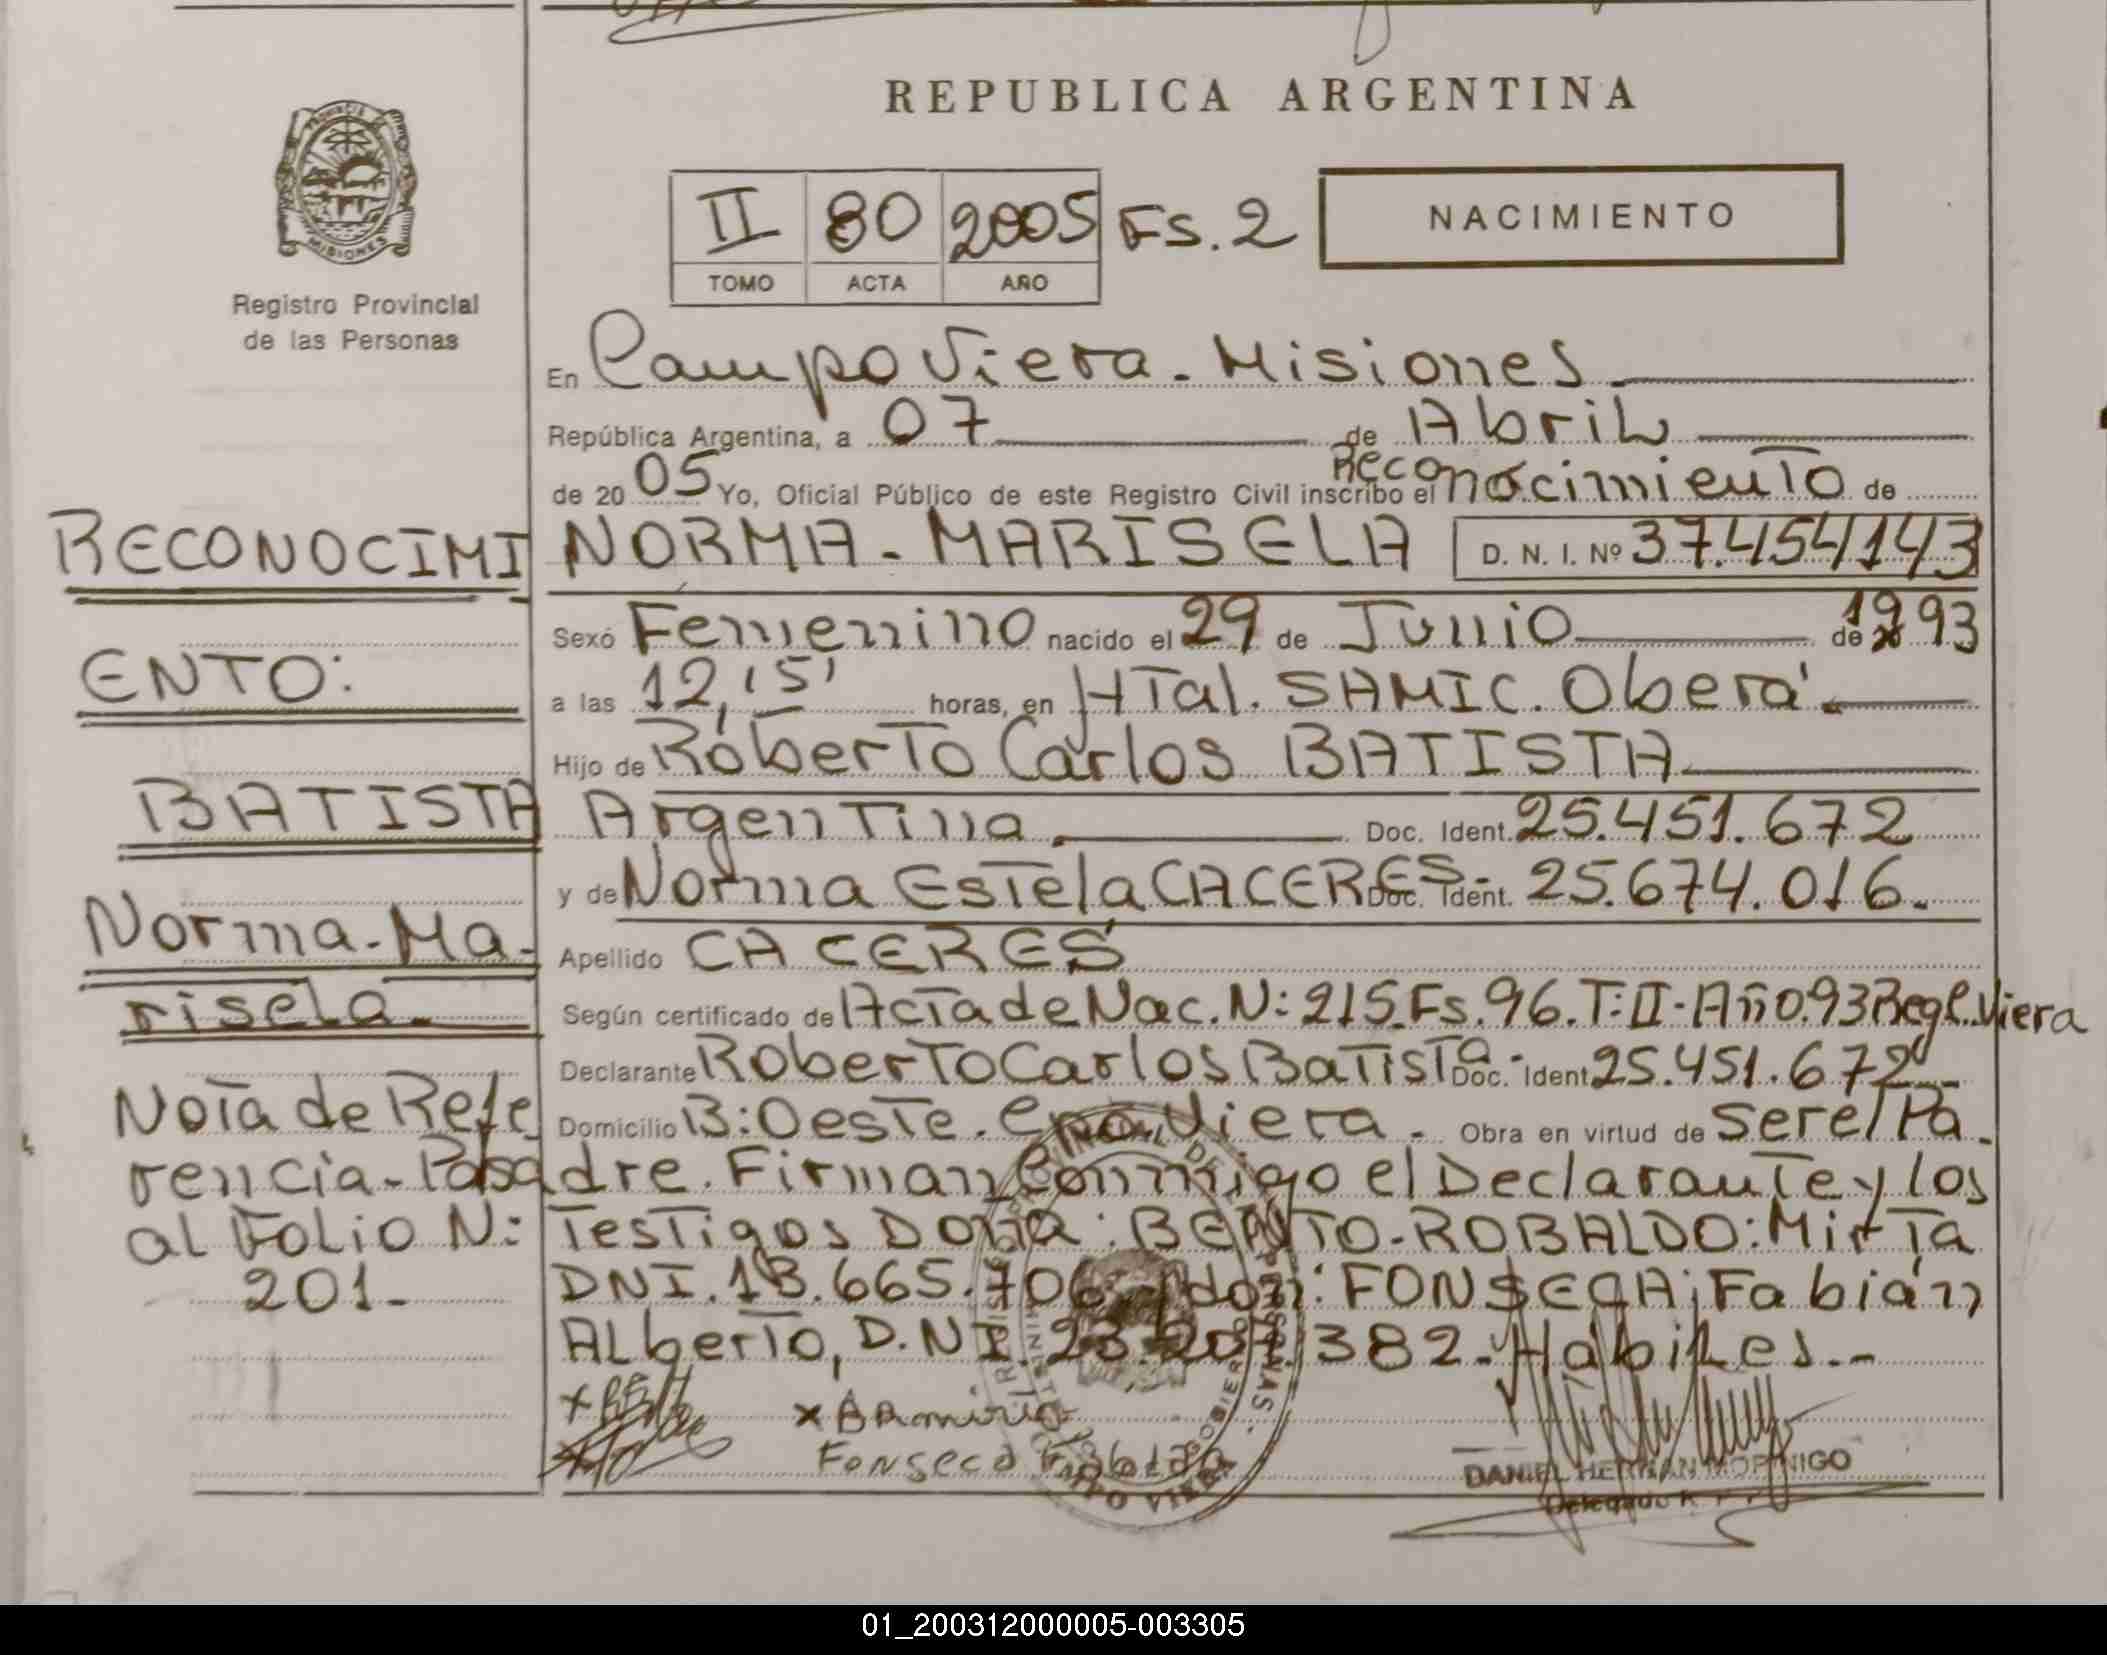 REPUBLICA ARGENTINA
II 80 2005 Fs. 2
TOMO ACTA AÑO
NACIMIENTO
PROVINCIA DE MISIONES
Registro Provincial
de las Personas
En Campo Viera - Misiones
República Argentina, a 07 de Abril
de 20 05 Yo, Oficial Público de este Registro Civil inscribo el Reconocimiento de
NORMA - MARISELA D. N. I. Nº 37.454143
Sexo Femenino nacido el 29 de Junio de 1993
a las 12,15' horas, en HTal. SAMIC. Oberá.
Hijo de Roberto Carlos BATISTA
Argentina Doc. Ident. 25.451.672
y de Norma Estela CACERES- Doc. Ident. 25.674.016.
Apellido CACERES
Según certificado de Acta de Nac. N: 215. Fs. 96. T: II - Año. 93 Reg C. Viera
Declarante Roberto Carlos Batista - Doc. Ident 25.451.672
Domicilio B: Oeste. Cpo. Viera. Obra en virtud de ser el Pa-
dre. Firman Conmigo el Declarante y los
Testigos Doña: BENITO-ROBALDO: Mirta
DNI. 18.665.706 y don: FONSECA; Fabián
Alberto, D.N.I. 23. 382. Hábiles.-
RECONOCIMI
ENTO:
BATISTA
Norma-Ma-
risela.
Nota de Refe
rencia-Pasa
al Folio N:
201-
Fonseca Fabian
CAMPO VIERA
DANIEL HERNAN MORINIGO
Delegado R. P. P.
01_200312000005-003305